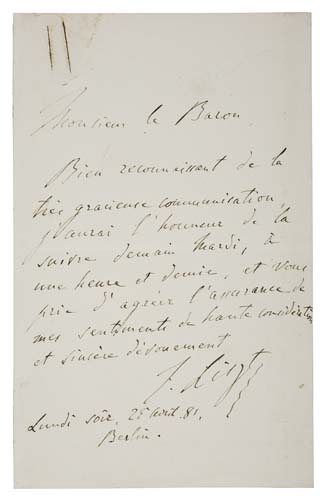 Monsieur le Baron
Bien reconnaissant de la
très gracieuse communication,
j'aurai l'honneur de la
suivre demain Mardi, à
une heure et demie, et vous
prie d'agréer l'assurance de
mes sentiments de haute considération
et sincère dévouement
F. Liszt
Lundi soir, 25 avril 81,
Berlin.